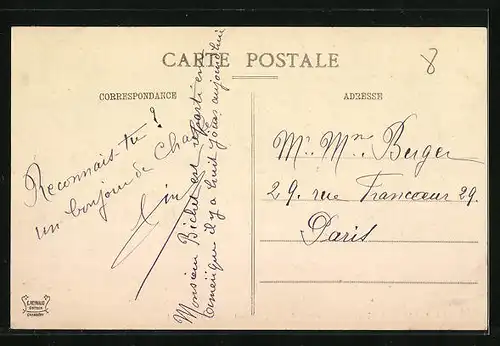 CARTE POSTALE
8
CORRESPONDANCE
ADRESSE
Reconnais-tu ?
un bonjour de
Monsieur Bichet est reparti en
Amérique il y a huit jours aujourd'hui
Mr. Mme Berger
29. rue Francoeur 29.
Paris